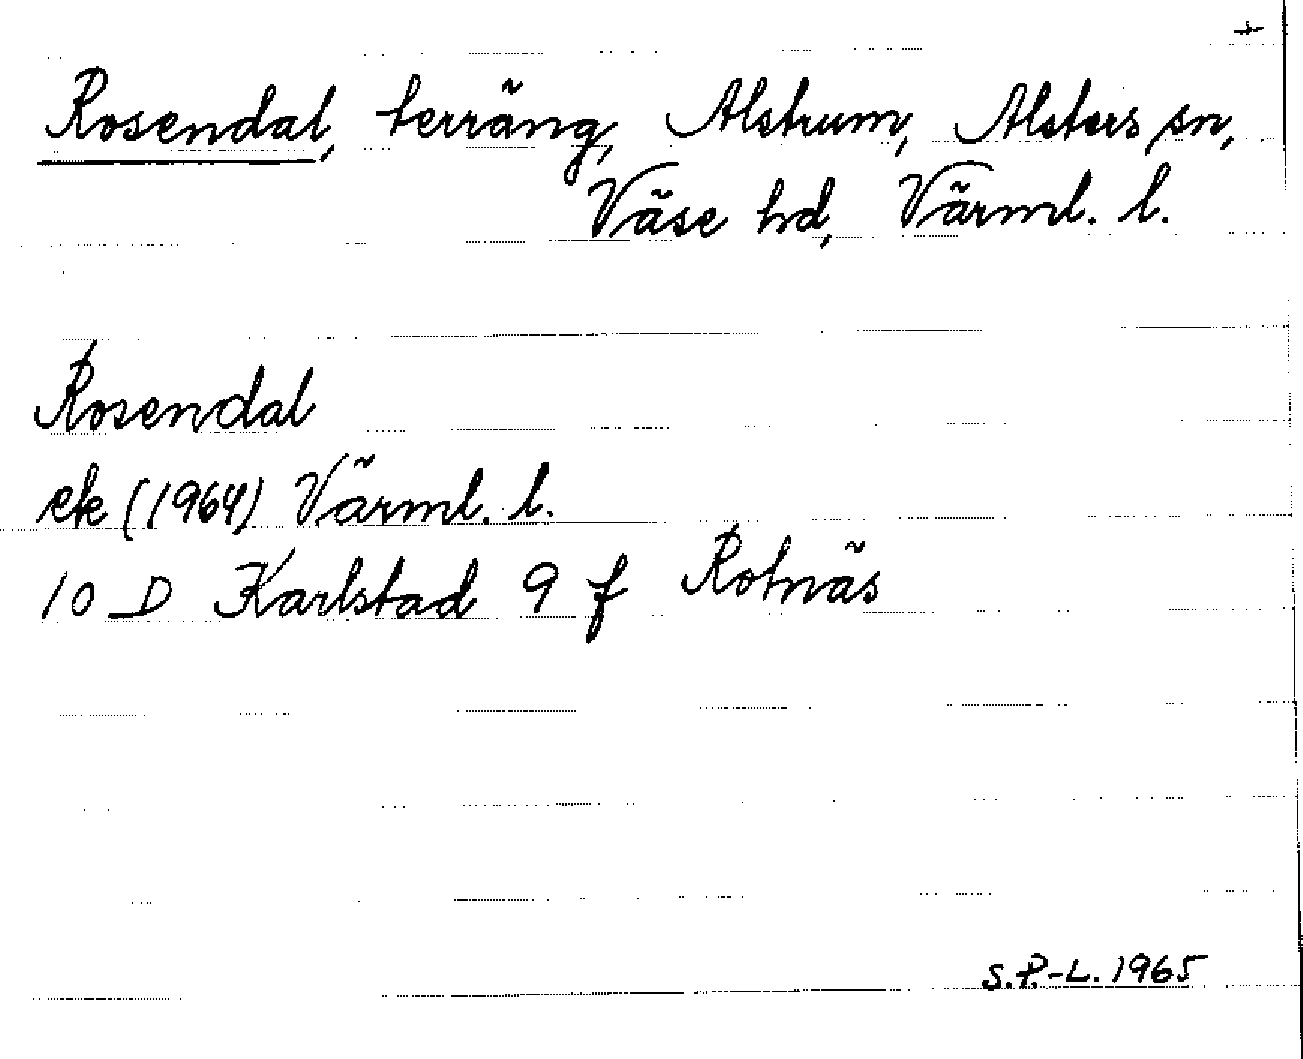 +
Rosendal, terräng, Alstrum, Alsters sn,
Väse hd, Värml. l.
Rosendal
ek (1964) Värml. l.
10 D Karlstad 9 f Rotnäs
S.P.-L. 1965